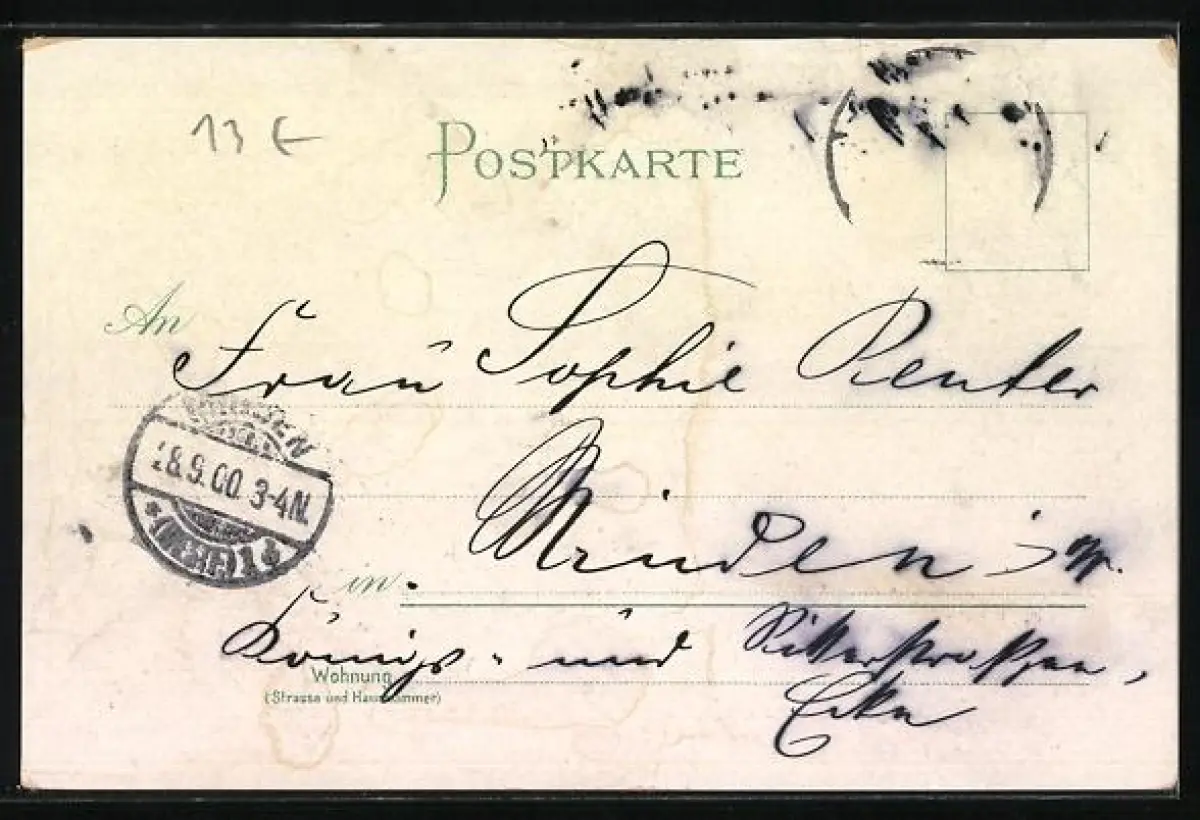 13 €
POSTKARTE
An
Frau Sophie Reuter
MINDEN
28.9.00. 3-4N.
* (WESTF.) 1 *
Minden i W.
in
Königs- und Ritterstraßen,
Ecke
Wohnung
(Strasse und Hausnummer)